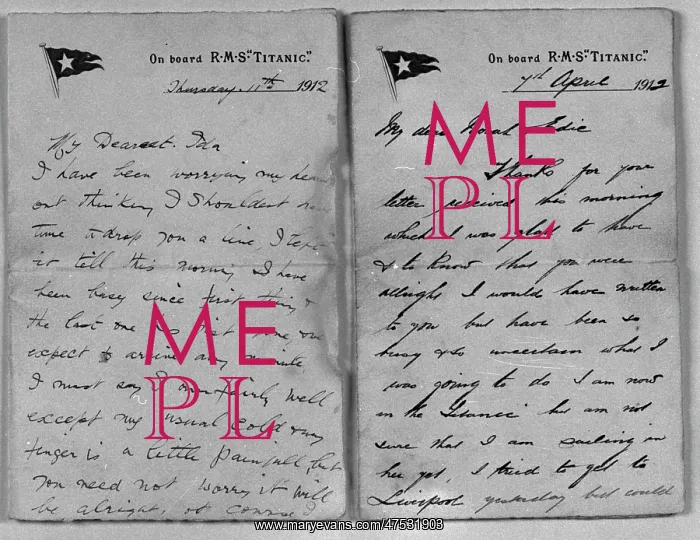 On board R·M·S·"TITANIC."
Thursday. 11th 1912
My Dearest. Ida
I have been worrying my
out thinking I Shouldent
time to drop you a line, I
it till this morning I have
been busy since first thing &
the last one is just
expect to arrive any minute
I must say I am fairly well
except my usual cold & my
finger is a little painfull but
you need not worry it will
be alright, of course I
On board R·M·S·"TITANIC."
7th April 1912
My dear Norah Edie
Thanks for your
letter received this morning
which I was glad to have
& to know that you were
allright I would have written
to you but have been so
busy & so uncertain what I
was going to do I am now
on the Titanic but am not
sure that I am sailing in
her yet, I tried to get to
Liverpool yesterday but could
ME
PL
ME
PL
www.maryevans.com/47531903